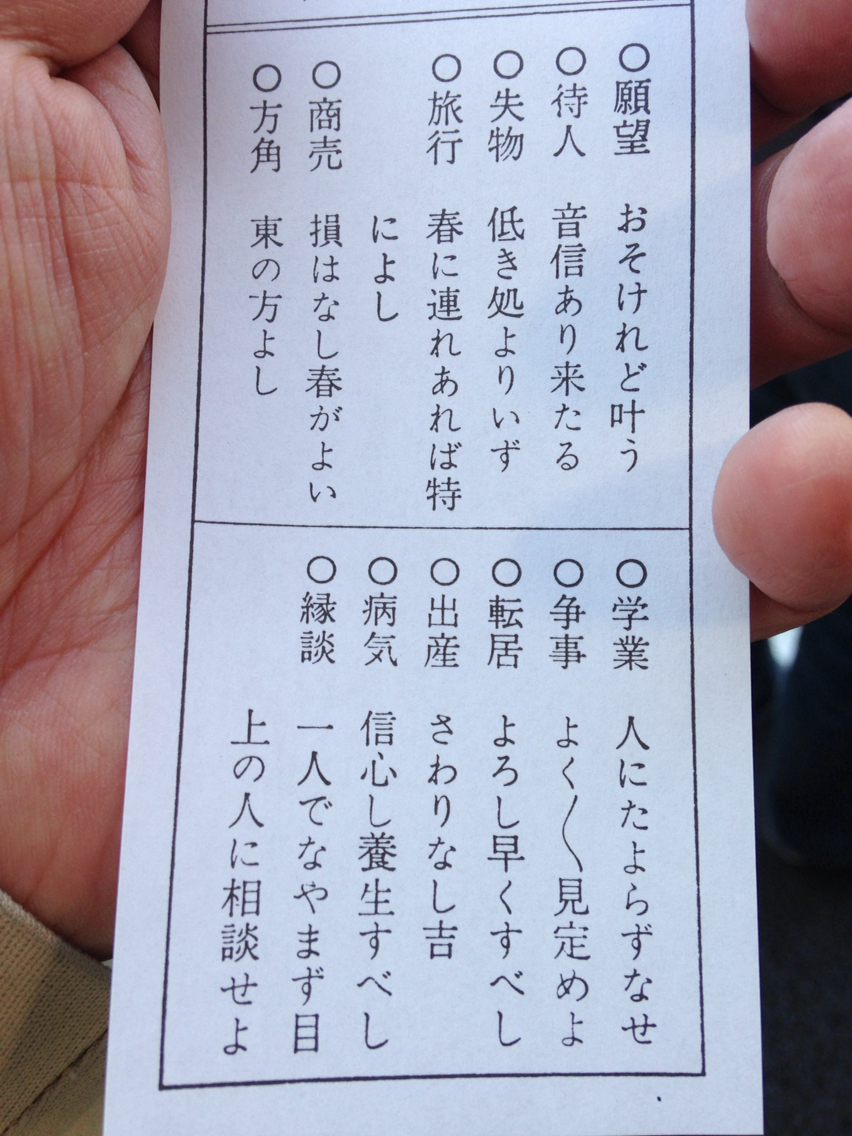 ○願望 おそけれど叶う
○待人 音信あり来たる
○失物 低き処よりいず
○旅行 春に連れあれば特
によし
○商売 損はなし春がよい
○方角 東の方よし
○学業 人にたよらずなせ
○争事 よく〳〵見定めよ
○転居 よろし早くすべし
○出産 さわりなし吉
○病気 信心し養生すべし
○縁談 一人でなやまず目
上の人に相談せよ